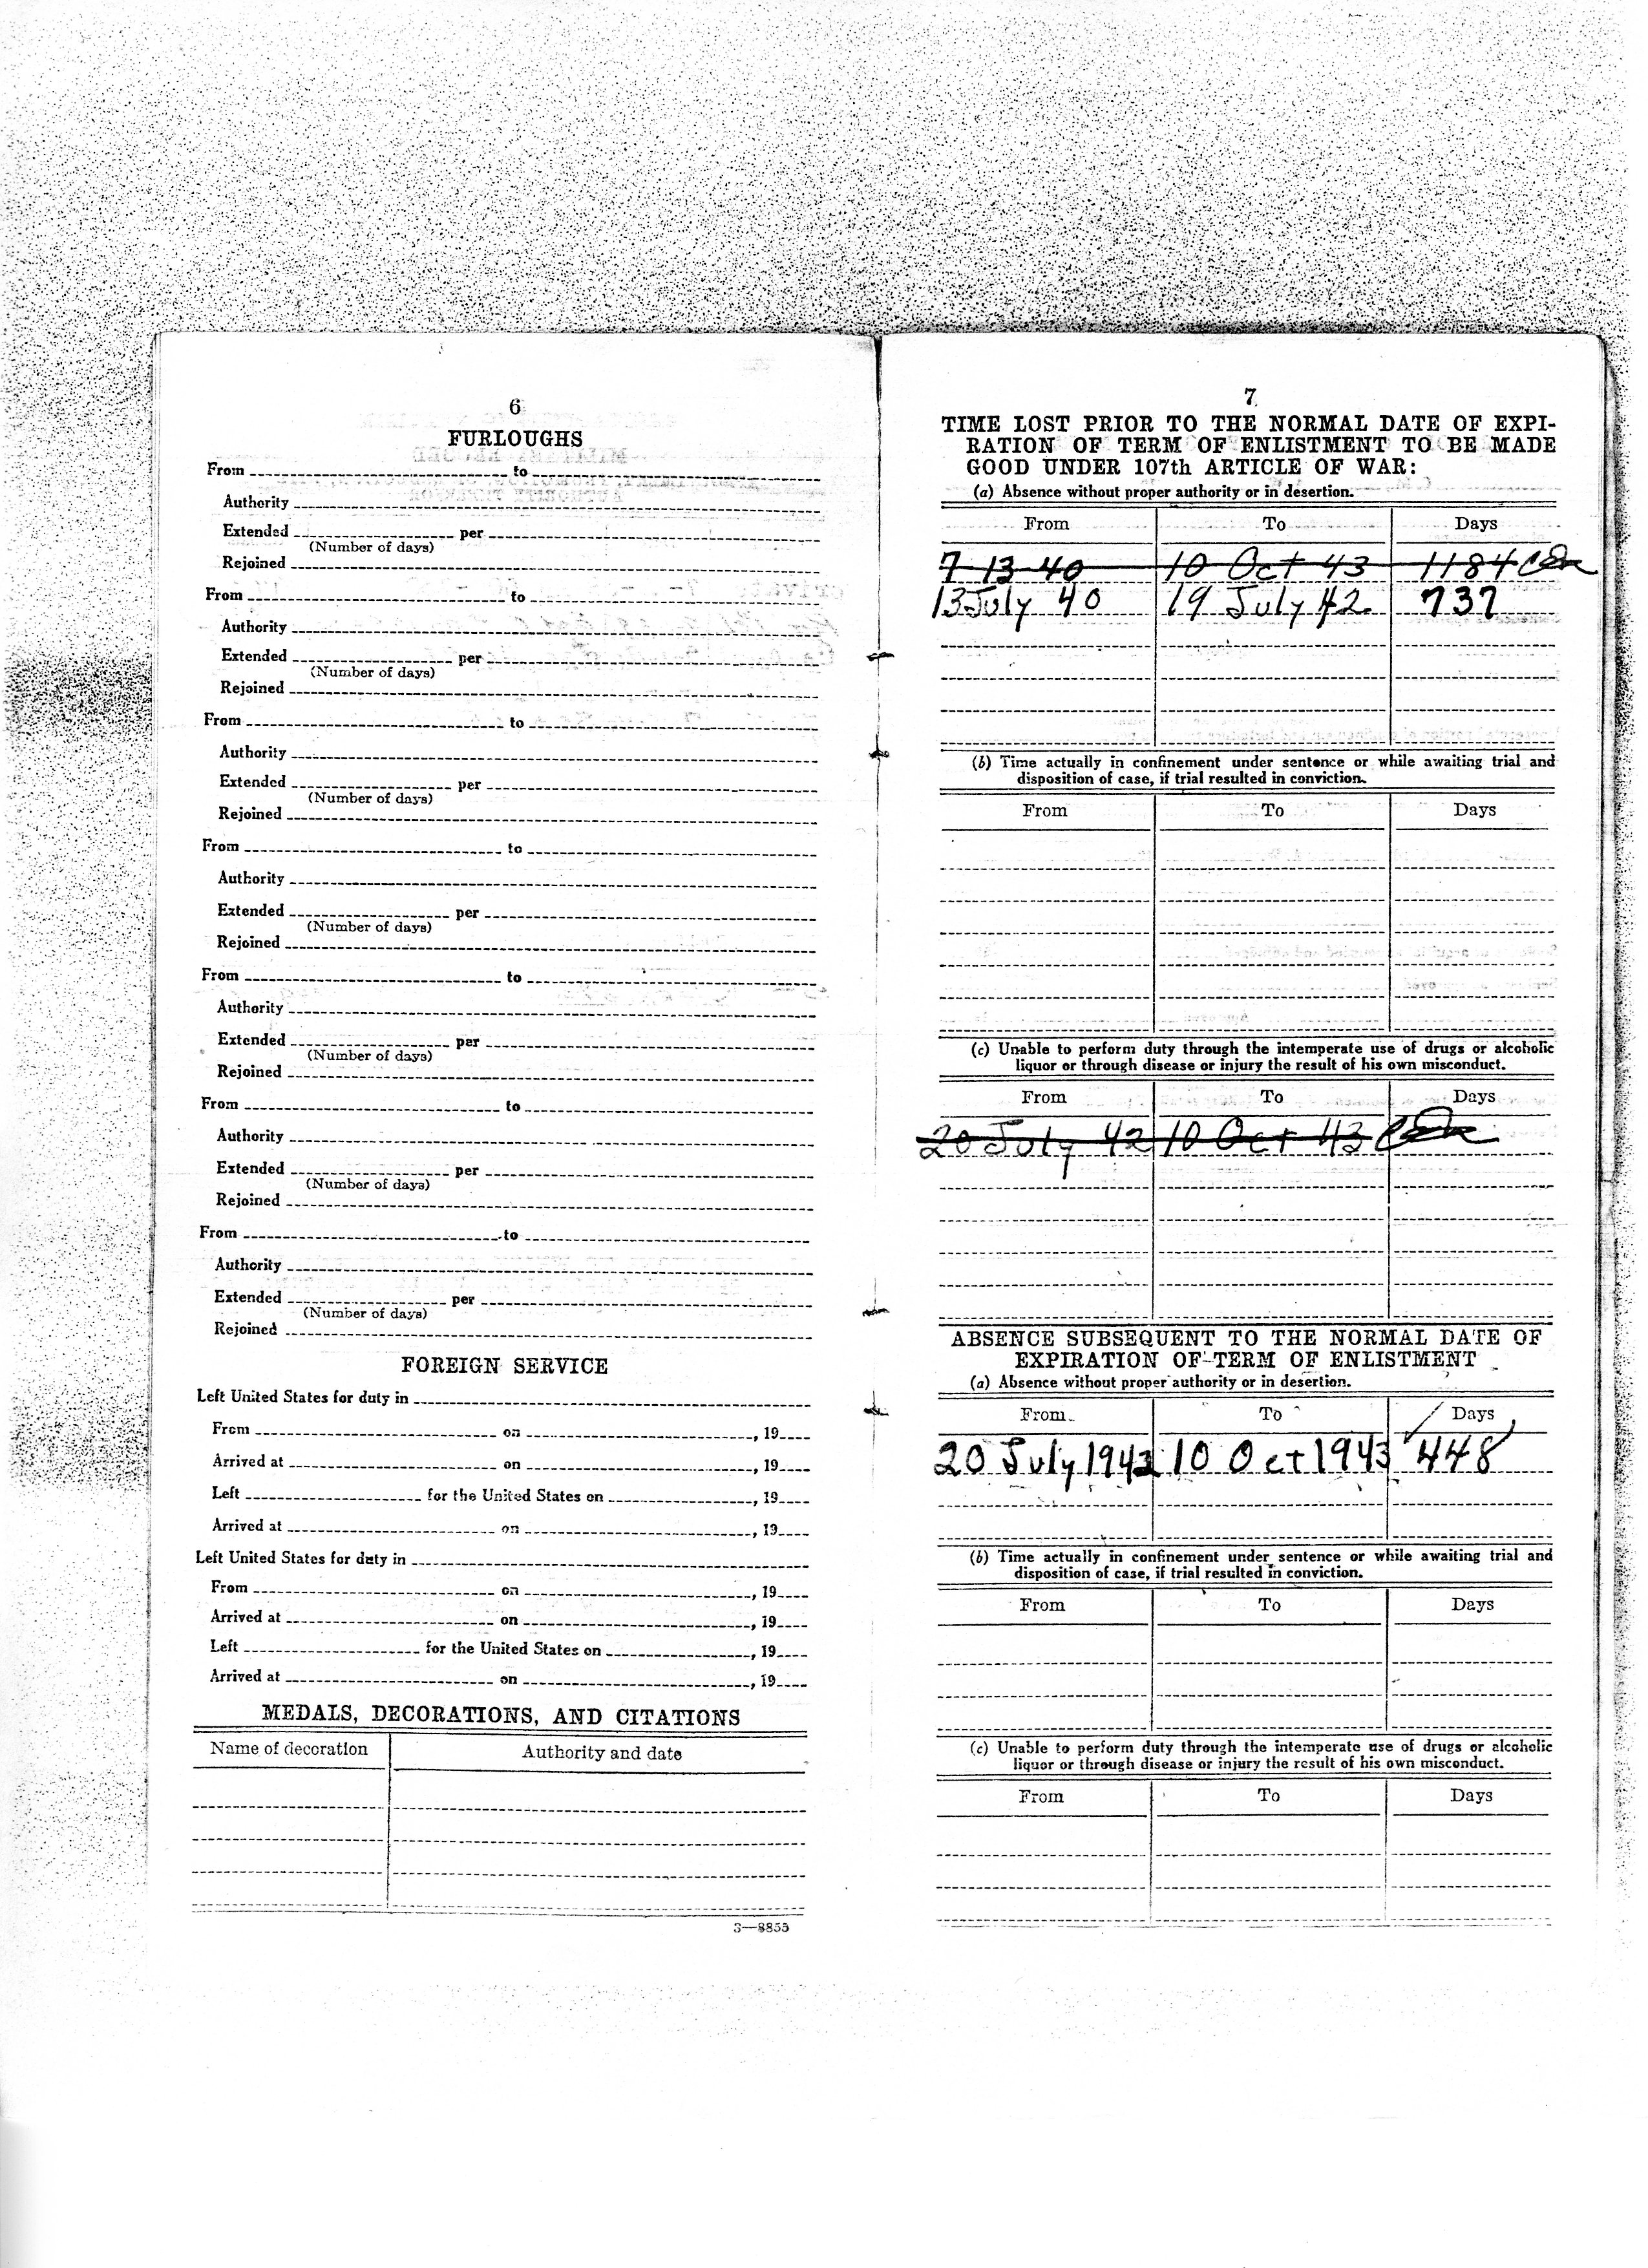 6
FURLOUGHS
From to
Authority
Extended per
(Number of days)
Rejoined
From to
Authority
Extended per
(Number of days)
Rejoined
From to
Authority
Extended per
(Number of days)
Rejoined
From to
Authority
Extended per
(Number of days)
Rejoined
From to
Authority
Extended per
(Number of days)
Rejoined
From to
Authority
Extended per
(Number of days)
Rejoined
From to
Authority
Extended per
(Number of days)
Rejoined
FOREIGN SERVICE
Left United States for duty in
From on , 19
Arrived at on , 19
Left for the United States on , 19
Arrived at on , 19
Left United States for duty in
From on , 19
Arrived at on , 19
Left for the United States on , 19
Arrived at on , 19
MEDALS, DECORATIONS, AND CITATIONS
Name of decoration Authority and date
3—8855
7
TIME LOST PRIOR TO THE NORMAL DATE OF EXPI-
RATION OF TERM OF ENLISTMENT TO BE MADE
GOOD UNDER 107th ARTICLE OF WAR:
(a) Absence without proper authority or in desertion.
From To Days
7 13 40 10 Oct 43 1184
13 July 40 19 July 42 737
(b) Time actually in confinement under sentence or while awaiting trial and
disposition of case, if trial resulted in conviction.
From To Days
(c) Unable to perform duty through the intemperate use of drugs or alcoholic
liquor or through disease or injury the result of his own misconduct.
From To Days
20 July 42 10 Oct 43
ABSENCE SUBSEQUENT TO THE NORMAL DATE OF
EXPIRATION OF TERM OF ENLISTMENT
(a) Absence without proper authority or in desertion.
From To Days
20 July 1942 10 Oct 1943 448
(b) Time actually in confinement under sentence or while awaiting trial and
disposition of case, if trial resulted in conviction.
From To Days
(c) Unable to perform duty through the intemperate use of drugs or alcoholic
liquor or through disease or injury the result of his own misconduct.
From To Days